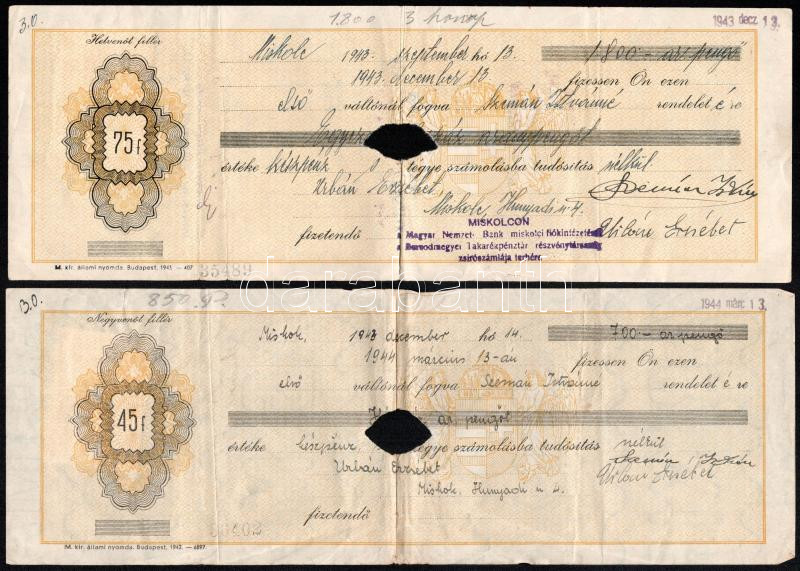 3.0.
1.800
3 honap
1943 decz 13.
Hetvenöt fillér
Miskolc 1943. szeptember hó 13. 1800.- ar. pengő
1943. december 13 fizessen Ön ezen
első váltónál fogva Szemán Istvánné rendelet é re
75 f
aranypengőt
értéke készpénz s tegye számolásba tudósítás nélkül
Urbán Erzsébet
Miskolc, Hunyadi u 4.
Szemán István
Erzsébet
fizetendő
MISKOLCON
a Magyar Nemzeti Bank miskolci fiókintézeténél
a Borsodmegyei Takarékpénztár részvénytársaság
zsirószámlája terhére.
M. kir. állami nyomda. Budapest, 1943. — 407
35489
darabanth
3.0.
850.
1944 márc 13.
Negyvenöt fillér
Miskolc, 1943 december hó 14. 700.- ar. pengő
1944 március 13-án fizessen Ön ezen
első váltónál fogva Szemán Istvánné rendelet é re
45 f
ar. pengőt
értéke készpénz, tegye számolásba tudósítás nélkül
Urbán Erzsébet
Miskolc, Hunyadi u 4.
Szemán István
Erzsébet
fizetendő
M. kir. állami nyomda. Budapest, 1942. — 6897.